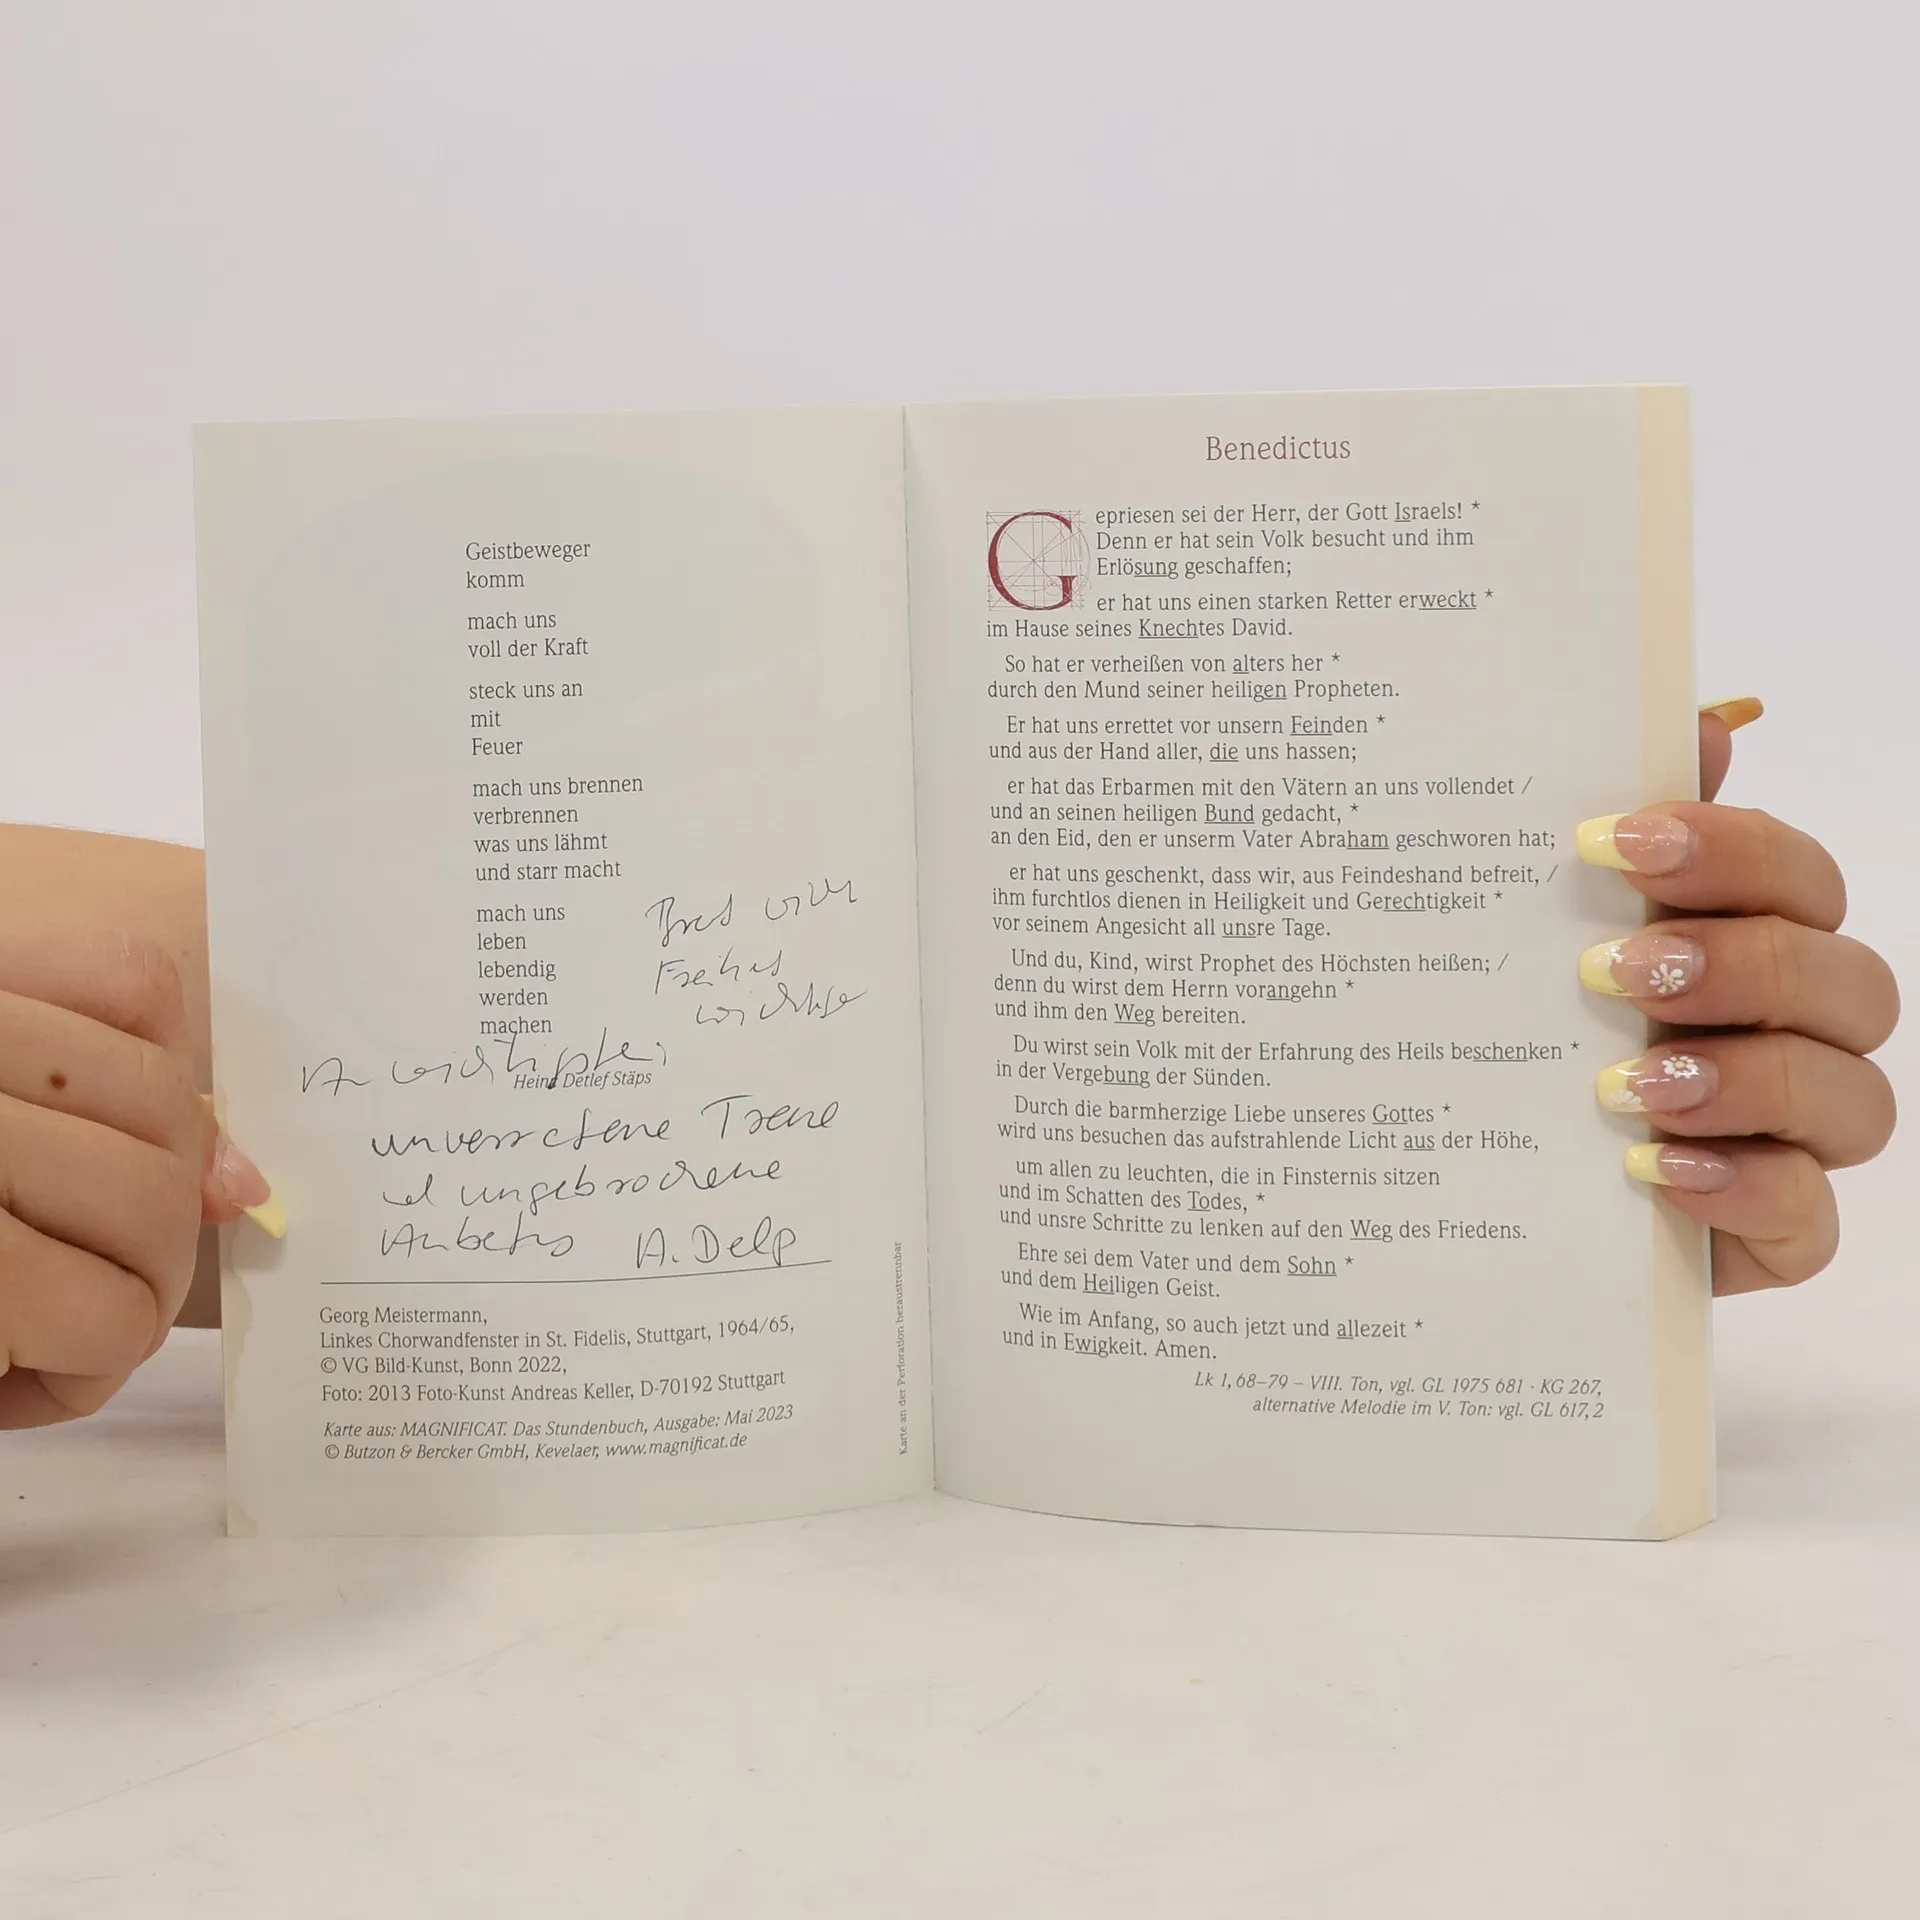 Geistbeweger
komm
mach uns
voll der Kraft
steck uns an
mit
Feuer
mach uns brennen
verbrennen
was uns lähmt
und starr macht
mach uns
leben
lebendig
werden
machen
Heinz Detlef Stäps
Brot
Freiheit
unverratene Treue
ungebrochene
A. Delp
Georg Meistermann,
Linkes Chorwandfenster in St. Fidelis, Stuttgart, 1964/65,
© VG Bild-Kunst, Bonn 2022,
Foto: 2013 Foto-Kunst Andreas Keller, D-70192 Stuttgart
Karte aus: MAGNIFICAT. Das Stundenbuch, Ausgabe: Mai 2023
© Butzon & Bercker GmbH, Kevelaer, www.magnificat.de
Karte an der Perforation heraustrennbar
Benedictus
Gepriesen sei der Herr, der Gott Israels! *
Denn er hat sein Volk besucht und ihm
Erlösung geschaffen;
er hat uns einen starken Retter erweckt *
im Hause seines Knechtes David.
So hat er verheißen von alters her *
durch den Mund seiner heiligen Propheten.
Er hat uns errettet vor unsern Feinden *
und aus der Hand aller, die uns hassen;
er hat das Erbarmen mit den Vätern an uns vollendet /
und an seinen heiligen Bund gedacht, *
an den Eid, den er unserm Vater Abraham geschworen hat;
er hat uns geschenkt, dass wir, aus Feindeshand befreit, /
ihm furchtlos dienen in Heiligkeit und Gerechtigkeit *
vor seinem Angesicht all unsre Tage.
Und du, Kind, wirst Prophet des Höchsten heißen; /
denn du wirst dem Herrn vorangehn *
und ihm den Weg bereiten.
Du wirst sein Volk mit der Erfahrung des Heils beschenken *
in der Vergebung der Sünden.
Durch die barmherzige Liebe unseres Gottes *
wird uns besuchen das aufstrahlende Licht aus der Höhe,
um allen zu leuchten, die in Finsternis sitzen
und im Schatten des Todes, *
und unsre Schritte zu lenken auf den Weg des Friedens.
Ehre sei dem Vater und dem Sohn *
und dem Heiligen Geist.
Wie im Anfang, so auch jetzt und allezeit *
und in Ewigkeit. Amen.
Lk 1, 68–79 – VIII. Ton, vgl. GL 1975 681 · KG 267,
alternative Melodie im V. Ton: vgl. GL 617, 2